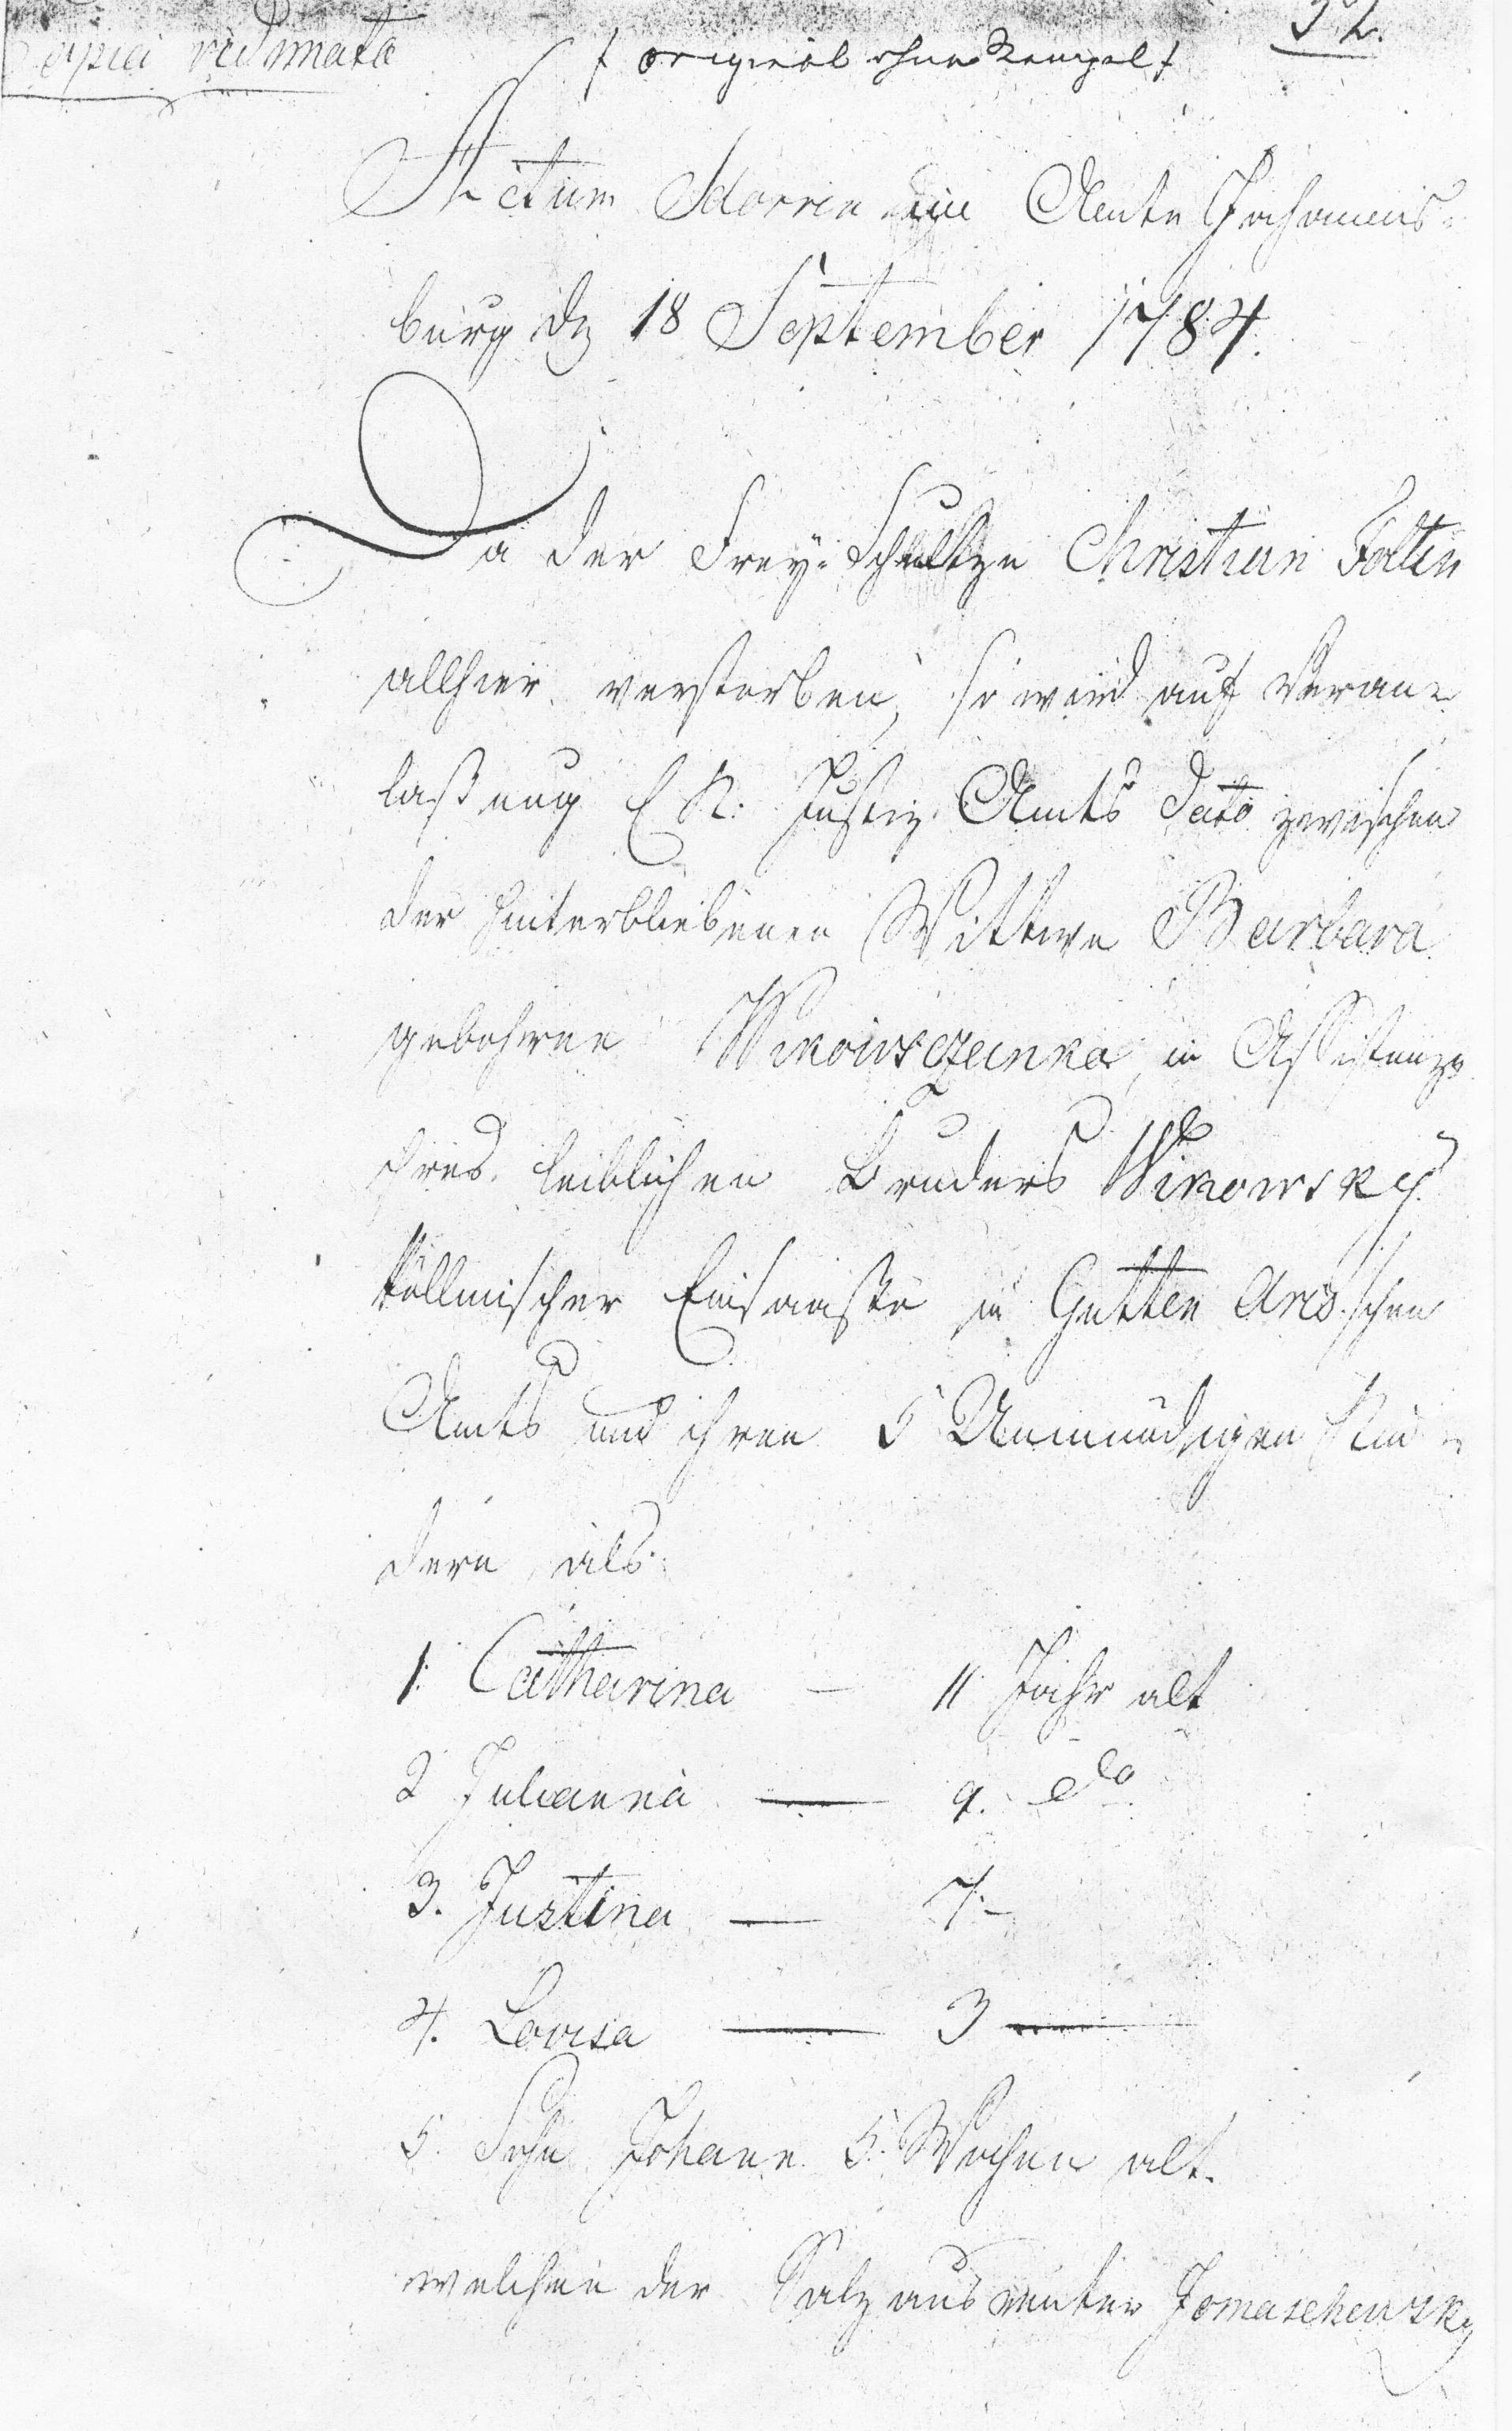 Copia vidimata
f original ohne Stempel f
32.
Actum Sdorren im Amte Johannis-
burg dn 18 September 1784.
Da der Frey-Schultze Christian Foltin
allhier verstorben, so wird auf Veran-
laßung E K: Justiz Amts dato zwischen
der hinterbliebenen Wittwe Barbara
gebohrne in Assistenz
ihres leiblichen Bruders
köllmischer Einsaaße in Gutten Arisschen
Amts und ihren 5 Unmündigen Kin-
dern als:
1. Catharina — 11 Jahr alt
2 Julianna — 9. do
3. Justina — 7. —
4. Lovisa — 3 —
5. Sohn Johann 5. Wochen alt.
welchen der